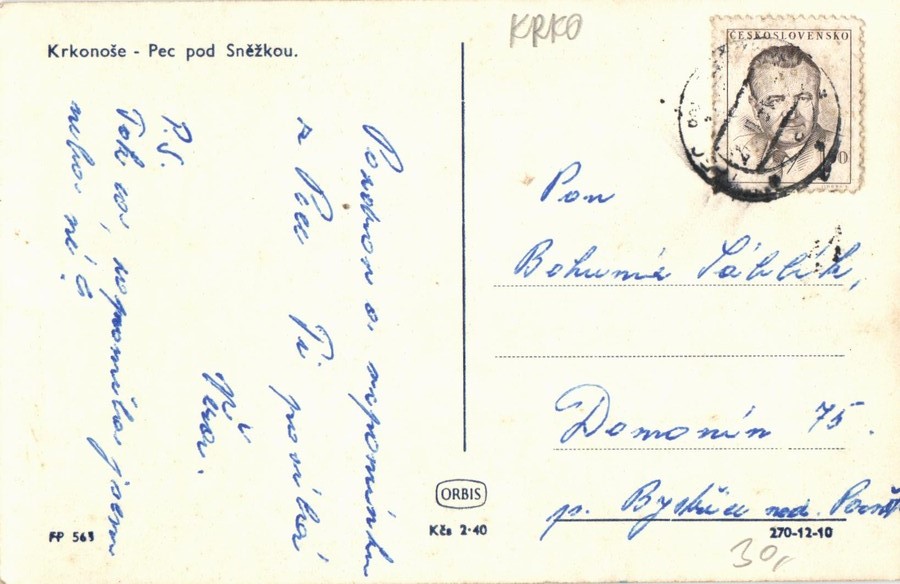 Krkonoše - Pec pod Sněžkou.
KRKO
ČESKOSLOVENSKO
PEC
Pozdrav a vzpomínku
z Pece Ti posílá
Věra.
P.S.
Tak co, nepomíchala jsem
nebo né?
Pan
Bohumír
Domanín 75.
p. Bystřice nad. Pernšt
ORBIS
Kčs 2·40
FP 563
270-12-10
30,